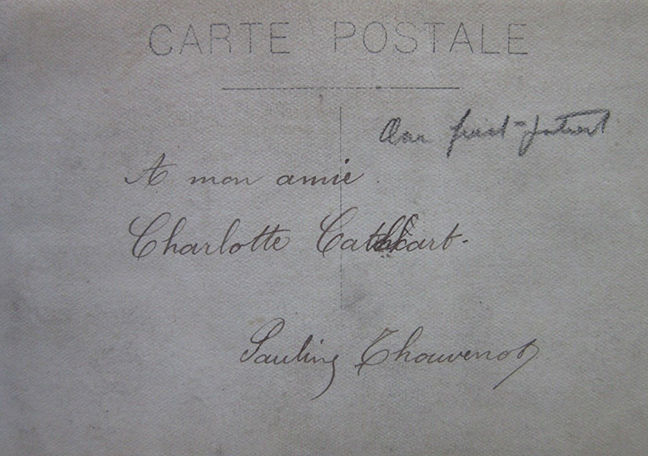 CARTE POSTALE
Our first-patient
A mon amie
Charlotte Cathcart.
Pauline Thouvenot